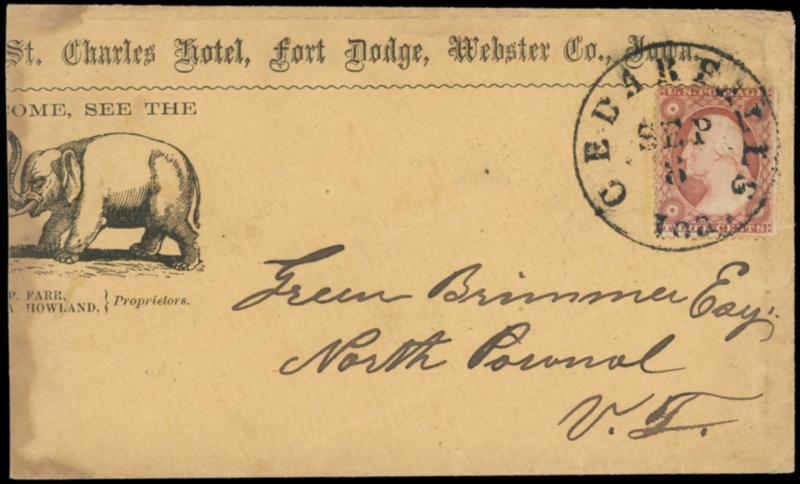 St. Charles Hotel, Fort Dodge, Webster Co., Iowa.
OME, SEE THE
P. FARR,
A. HOWLAND, } Proprietors.
CEDAR FALLS
SEP
Iowa
U.S. POSTAGE
THREE CENTS
Green Brimmer Esq.
North Pownal
V.T.